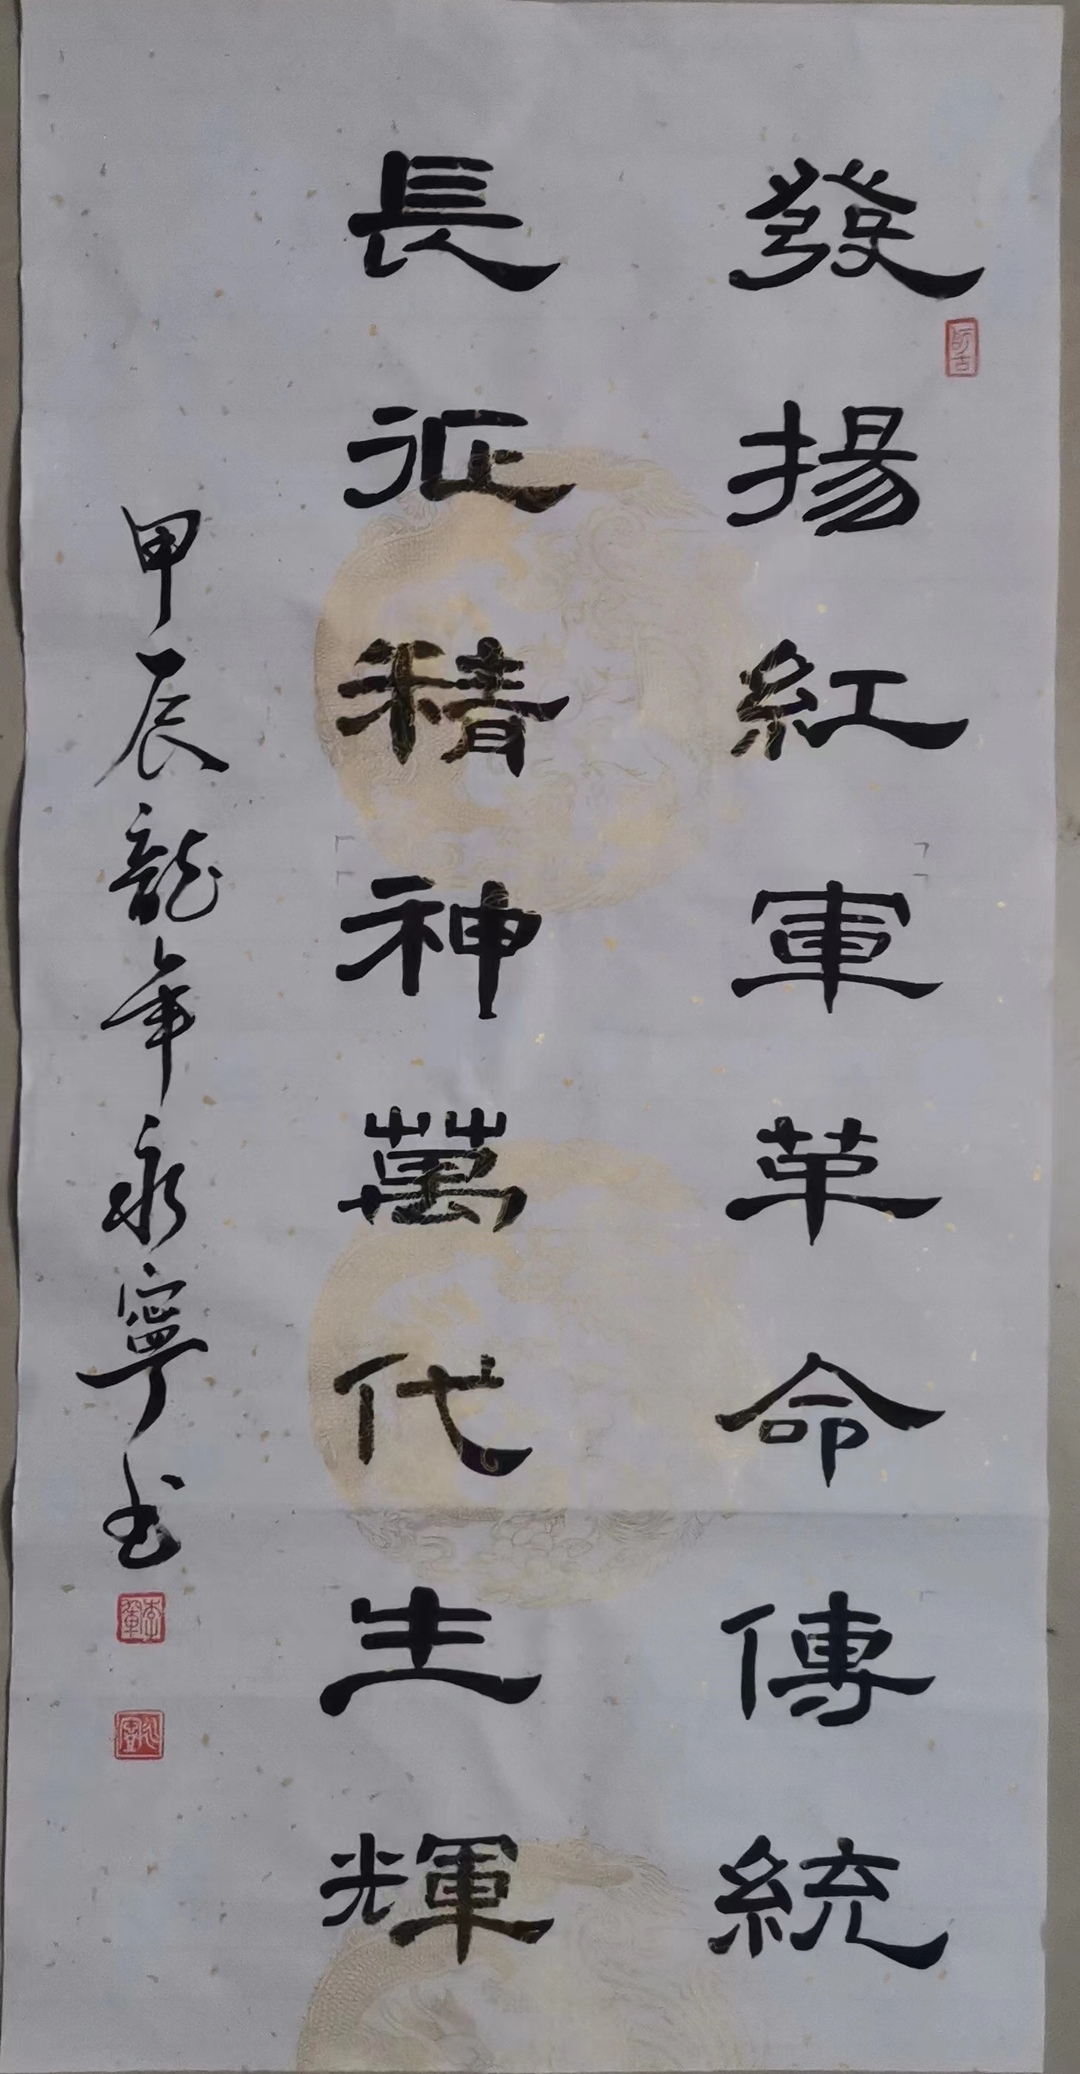 發揚紅軍革命傳統
長征精神萬代生輝
甲辰龍年永寧书
師古